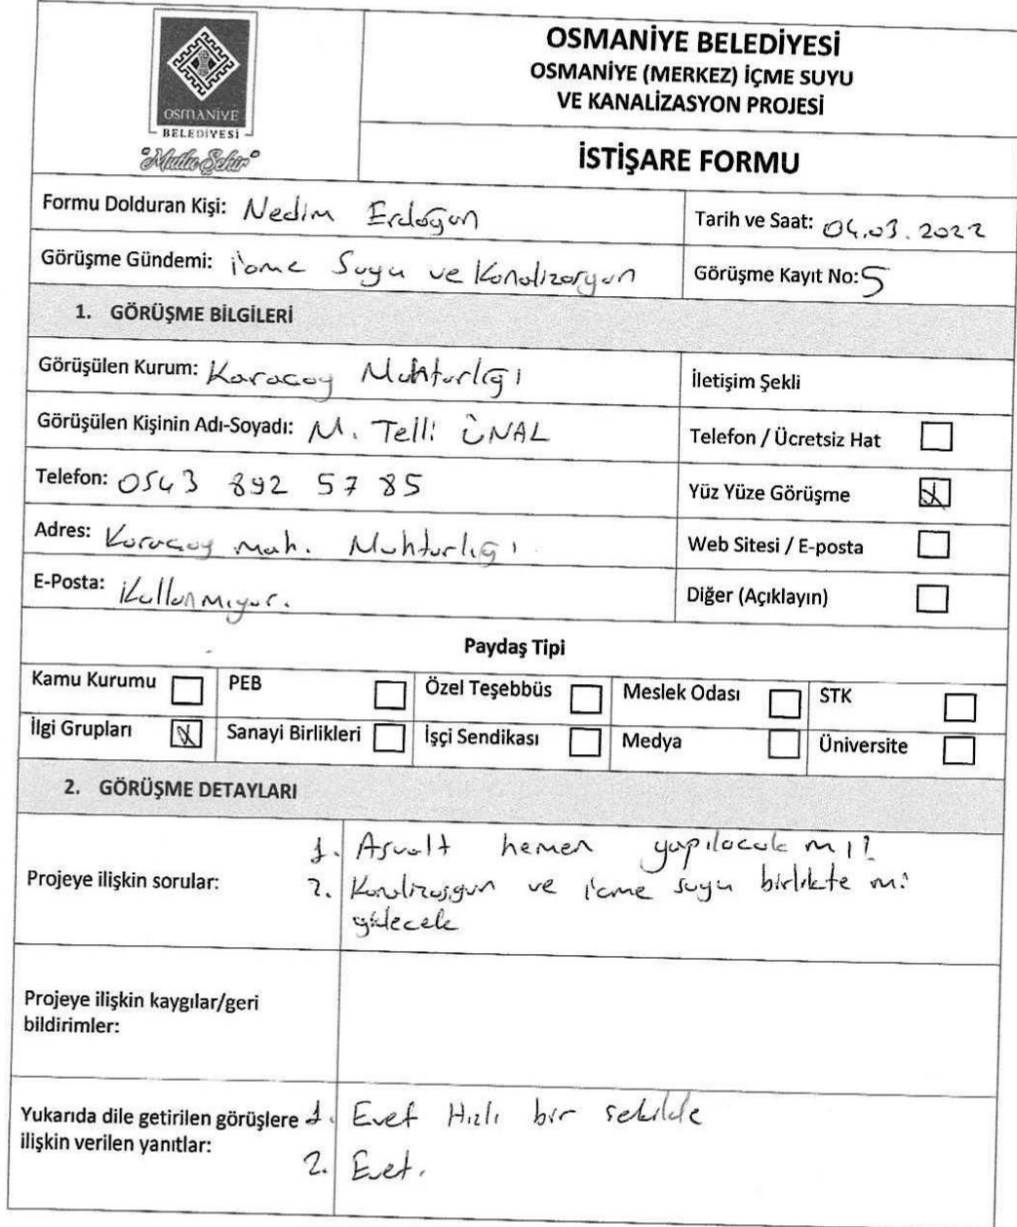 OSMANİYE
BELEDİYESİ
"Mutlu Şehir"
OSMANİYE BELEDİYESİ
OSMANİYE (MERKEZ) İÇME SUYU
VE KANALİZASYON PROJESİ
İSTİŞARE FORMU
Formu Dolduran Kişi: Nedim Erdoğan
Tarih ve Saat: 04.03.2022
Görüşme Gündemi: içme Suyu ve Kanalizasyon
Görüşme Kayıt No: 5
1. GÖRÜŞME BİLGİLERİ
Görüşülen Kurum: Karaçay Muhtarlığı
İletişim Şekli
Görüşülen Kişinin Adı-Soyadı: M. Telli ÜNAL
Telefon / Ücretsiz Hat
Telefon: 0543 892 57 85
Yüz Yüze Görüşme
Adres: Karaçay Mah. Muhtarlığı.
Web Sitesi / E-posta
E-Posta: Kullanmıyor.
Diğer (Açıklayın)
Paydaş Tipi
Kamu Kurumu PEB Özel Teşebbüs Meslek Odası STK
İlgi Grupları Sanayi Birlikleri İşçi Sendikası Medya Üniversite
2. GÖRÜŞME DETAYLARI
Projeye ilişkin sorular:
1. Asvalt hemen yapılacak mı?
2. Kanalizasyon ve içme suyu birlikte mi
gidecek
Projeye ilişkin kaygılar/geri
bildirimler:
Yukarıda dile getirilen görüşlere
ilişkin verilen yanıtlar:
1. Evet Hızlı bir şekilde
2. Evet.